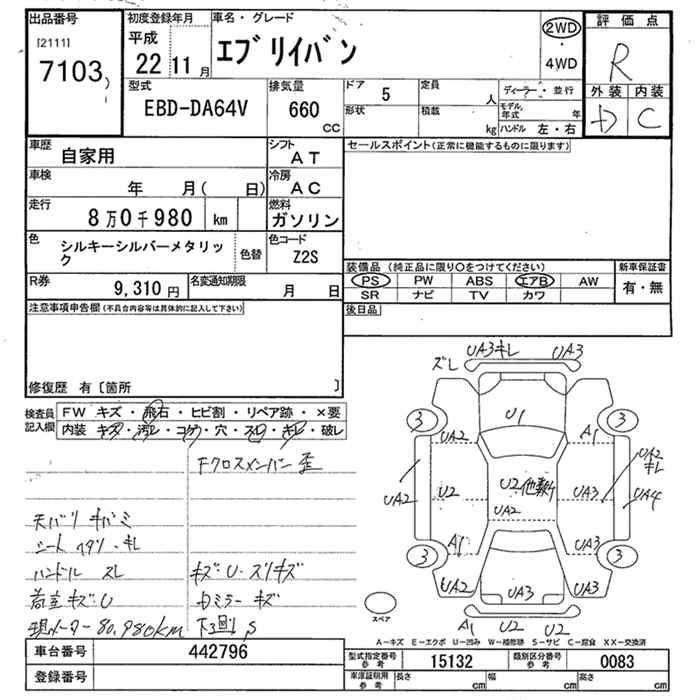 出品番号
[2111]
7103
初度登録年月
平成
22 11 月
車名・グレード
エブリイバン
2WD
・
4WD
評価点
R
外装 内装
C
型式
EBD-DA64V
排気量
660
CC
ドア 5
定員
人
形状
積載
kg
ディーラー・並行
モデル年式 年
ハンドル 左・右
車歴 自家用
シフト AT
車検 年 月( 日)
冷房 AC
走行 8万0千980 km
燃料 ガソリン
色 シルキーシルバーメタリック
色替
色コード Z2S
R券 9,310 円
名変通知期限 月 日
セールスポイント(正常に機能するものに限ります)
装備品 (純正品に限り○をつけてください)
PS PW ABS エアB AW
SR ナビ TV カワ
新車保証書
有・無
後日品
注意事項申告欄(不具合内容等は具体的に記入して下さい)
修復歴 有〔箇所 〕
検査員記入欄
FW キズ・飛石・ヒビ割・リペア跡・×要
内装 キズ・汚レ・コゲ・穴・スレ・キレ・破レ
Fクロスメンバー歪
天バリ キバミ
シート ヘタリ・キレ
ハンドル スレ
荷室キズ・U
現メーター 80,980km
キズ・U・スリキズ
カミラー キズ
下回リ S
ズレ
UA3キレ
UA3
3
3
UA2
U1
A1
UA2
キレ
UA2
U2
U2
UA2
UA3
UA4
3
A1
UA3
3
UA2
UA3
UA3
A1
U2
U2
スペア
A-キズ E-エクボ U-凹み W-補修跡 S-サビ C-腐食 XX-交換済
車台番号 442796
登録番号
型式指定番号 参考 15132
類別区分番号 参考 0083
車庫証明用 参考
長さ cm
幅 cm
高さ cm